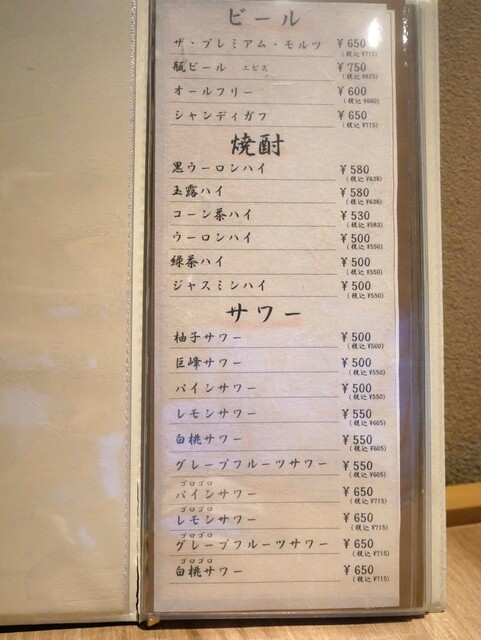 ビール
ザ・プレミアム・モルツ ¥650
(税込¥715)
瓶ビール エビス ¥750
(税込¥825)
オールフリー ¥600
(税込¥660)
シャンディガフ ¥650
(税込¥715)
焼酎
黒ウーロンハイ ¥580
(税込¥638)
玉露ハイ ¥580
(税込¥638)
コーン茶ハイ ¥530
(税込¥583)
ウーロンハイ ¥500
(税込¥550)
緑茶ハイ ¥500
(税込¥550)
ジャスミンハイ ¥500
(税込¥550)
サワー
柚子サワー ¥500
(税込¥500)
巨峰サワー ¥500
(税込¥550)
パインサワー ¥500
(税込¥550)
レモンサワー ¥550
(税込¥605)
白桃サワー ¥550
(税込¥605)
グレープフルーツサワー ¥550
(税込¥605)
ゴロゴロ
パインサワー ¥650
(税込¥715)
ゴロゴロ
レモンサワー ¥650
(税込¥715)
ゴロゴロ
グレープフルーツサワー ¥650
(税込¥715)
ゴロゴロ
白桃サワー ¥650
(税込¥715)